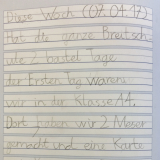 Diese Woch (07.04.17)
Hat die ganze Breitsch
ute 2 bastel Tage
der Ersten Tag waren
wir in der Klasse A4,
Dort haben wir 2 Maser
gemacht und eine Karte